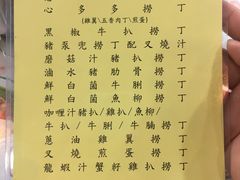 心多多撈丁
(雞翼\五香肉丁\煎蛋)
黑椒牛扒撈丁
豬豕兜撈丁配叉燒汁
蘑菇汁豬扒撈丁
滷水豬肋骨撈丁
鮮白菌牛脷撈丁
鮮白菌魚柳撈丁
咖喱汁豬扒/雞扒/魚柳/
牛扒/牛脷/牛腩撈丁
蔥油雞翼撈丁
叉燒煎蛋撈丁
龍蝦汁蟹籽雞扒撈丁